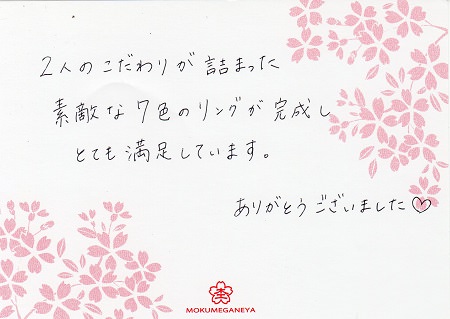 2人のこだわりが詰まった
素敵な7色のリングが完成し
とても満足しています。
ありがとうございました♡
MOKUMEGANEYA